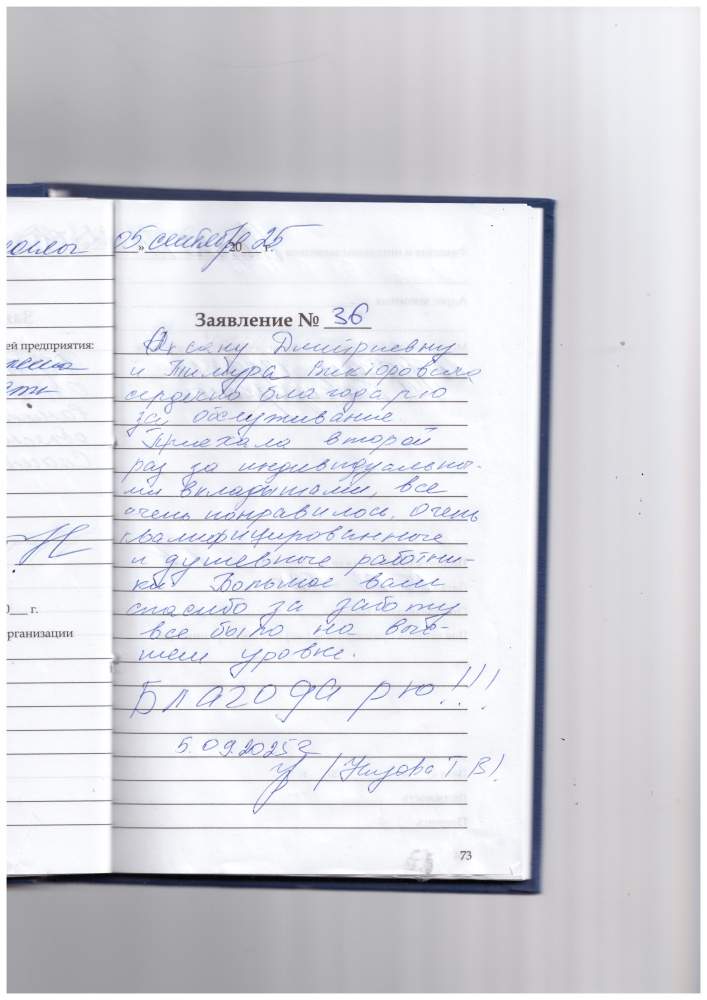 05 сентября 2025 г.
Заявление № 36
Оксану Дмитриевну
и Тимура Викторовича
сердечно благодарю
за обслуживание
Приехала второй
раз за индивидуальны-
ми вкладышами, все
очень понравилось. Очень
квалифицированные
и душевные работни-
ки Большое вам
спасибо за заботу
все было на выс-
шем уровне.
Благодарю!!!
5.09.2025г
Т В)
73
ей предприятия:
0 г.
рганизации